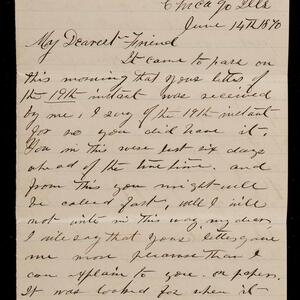 Chicago Ills
June 14th 1870
My Dearest Friend
It came to pass on
this morning that your letter of
the 19th instant was received
by me, I say of the 19th instant
for so you did have it,
You in this were last six days
ahead of the time. and
from this you might well
be called fast, well I will
not write in this way my dear
I will say that your letter gave
me more pleasure than I
can explain to you on paper.
It was looked for when it